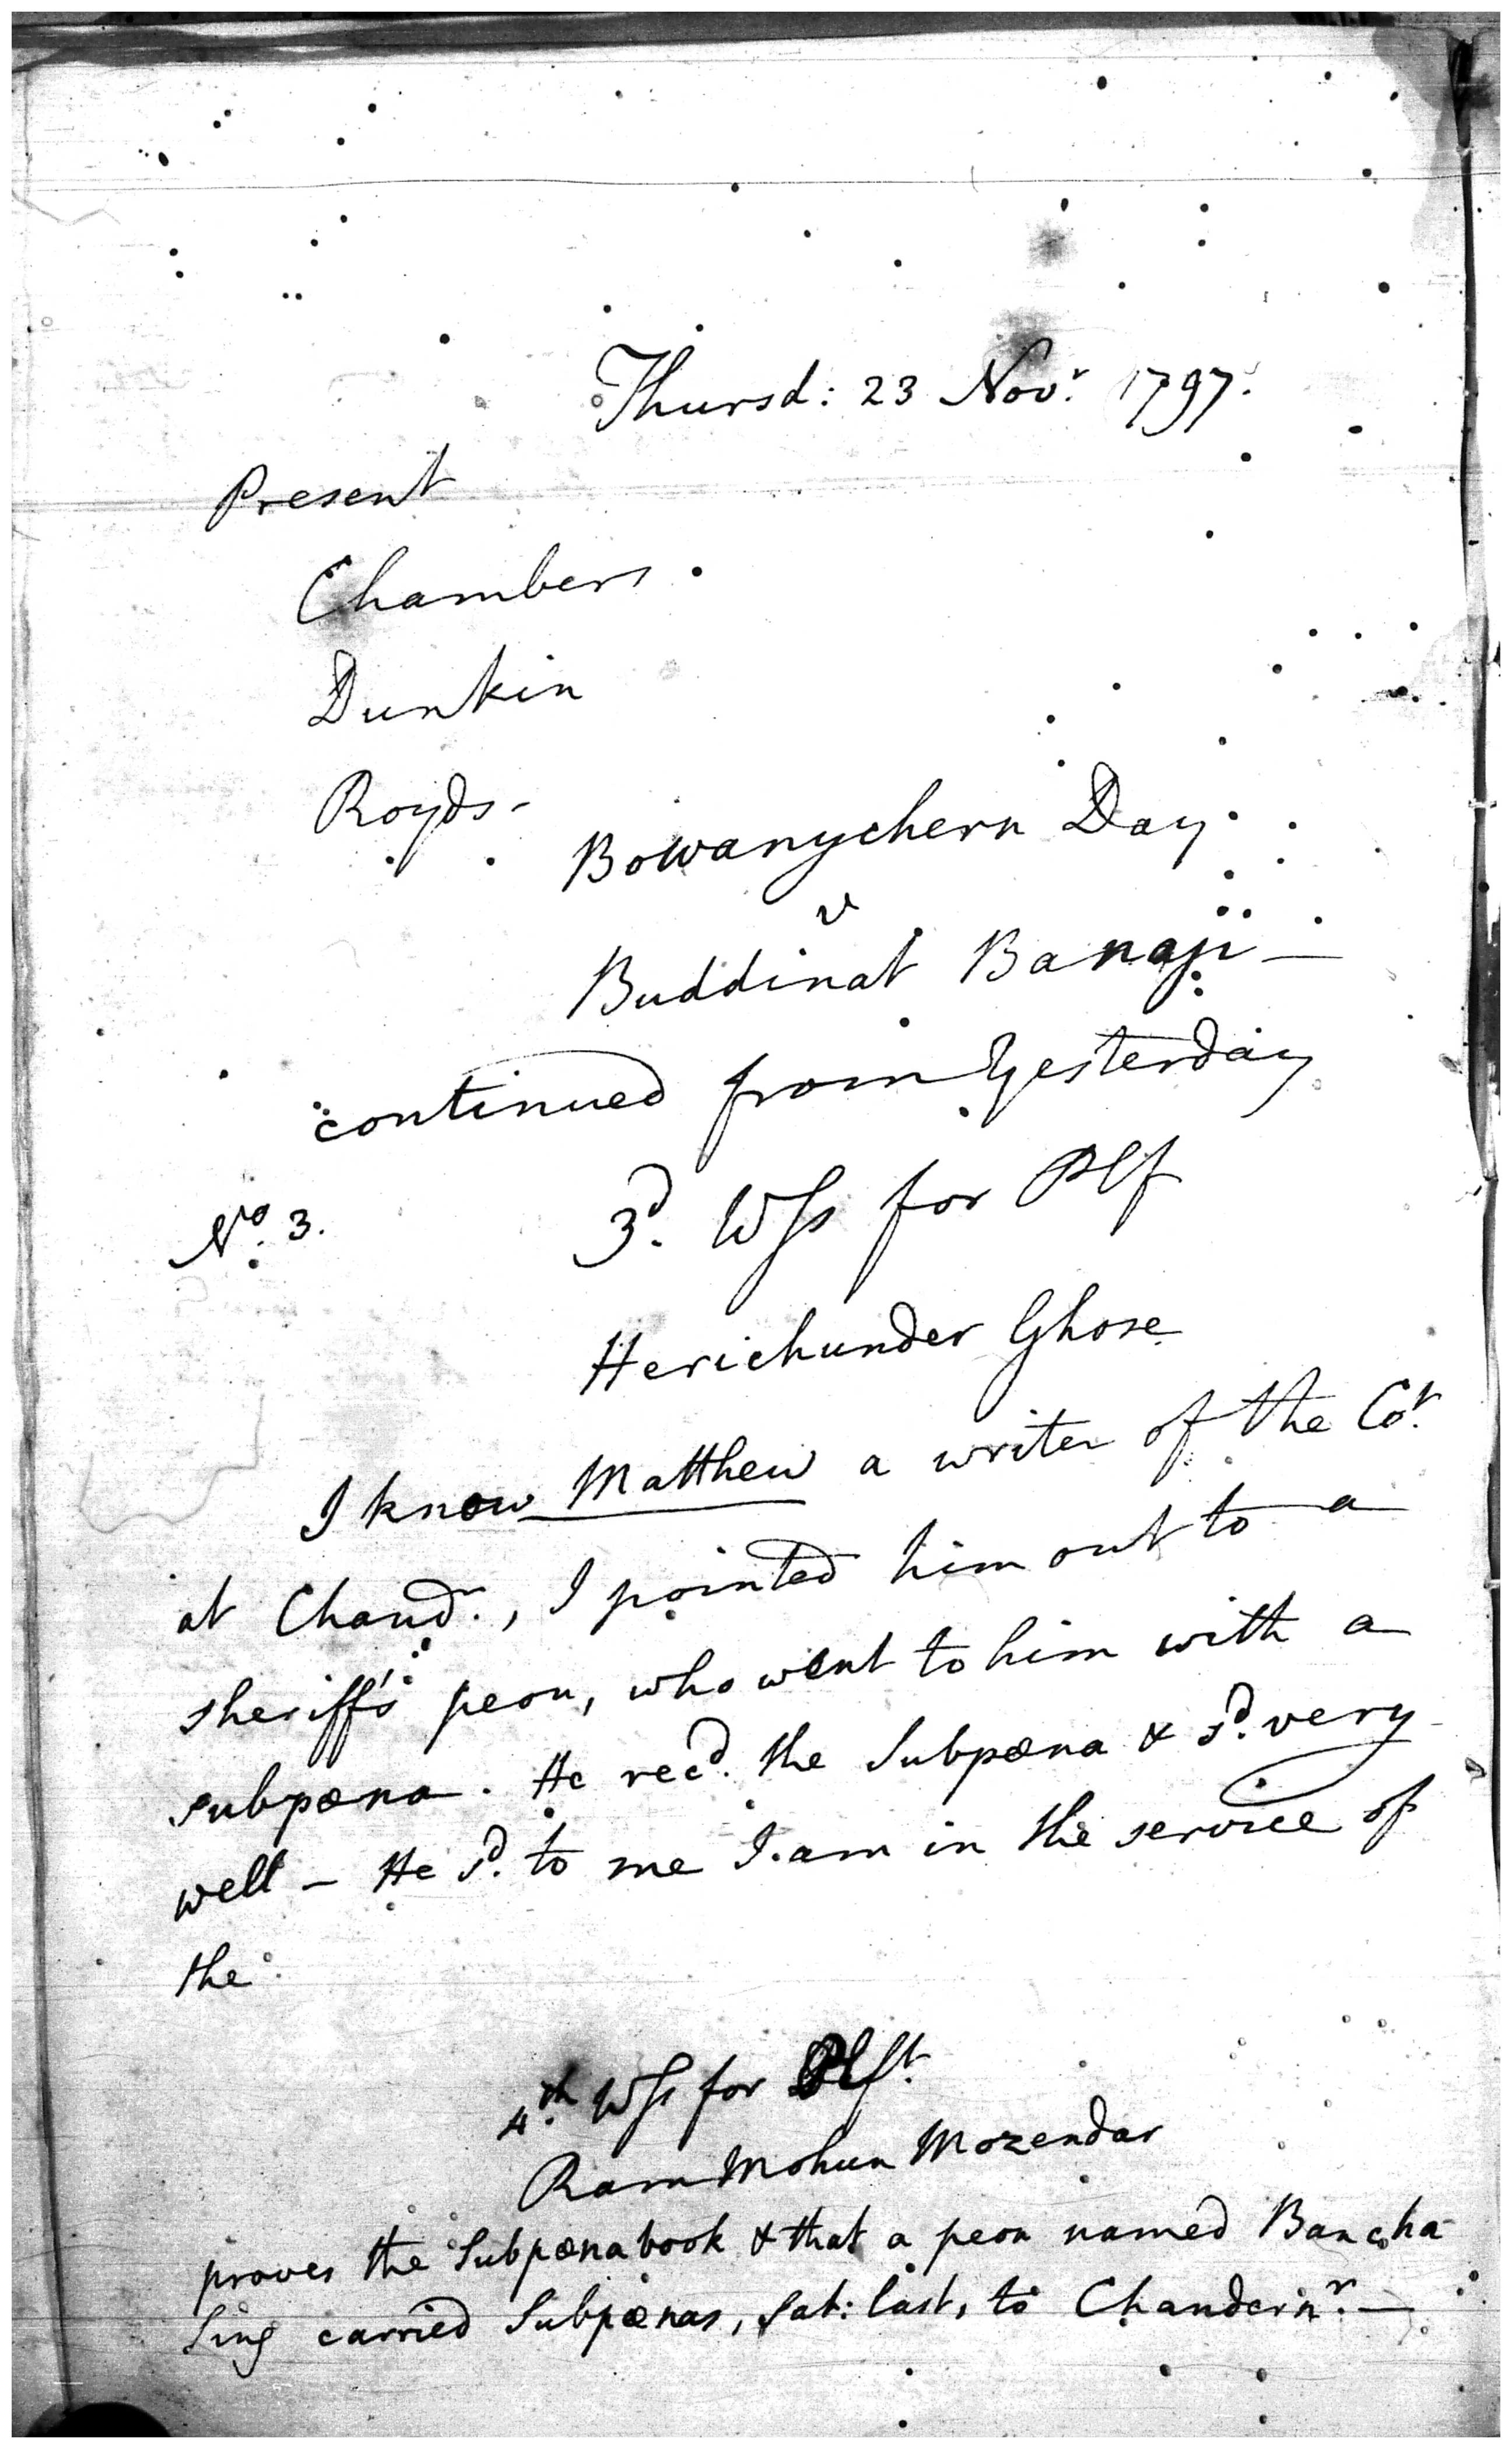 Thursd: 23 Novr. 1797.
Present
Chambers.
Dunkin
Royds-
Bowanychern Day
v
Buddinat Banaji —
continued from Yesterday
No. 3.
3d. Wss for Plf
Herichunder Ghose
I know Matthew a writer of the Cot.
at Chandr., I pointed him out to a
sheriff's peon, who went to him with a
subpœna. He recd. the Subpœna & sd. very
well - He sd. to me I am in the service of
the
4th. Wss for Plft.
Ram Mohun Mozendar
proves the Subpœna book & that a peon named Bancha
Sing carried Subpœnas, Sat: last, to Chandernr. —